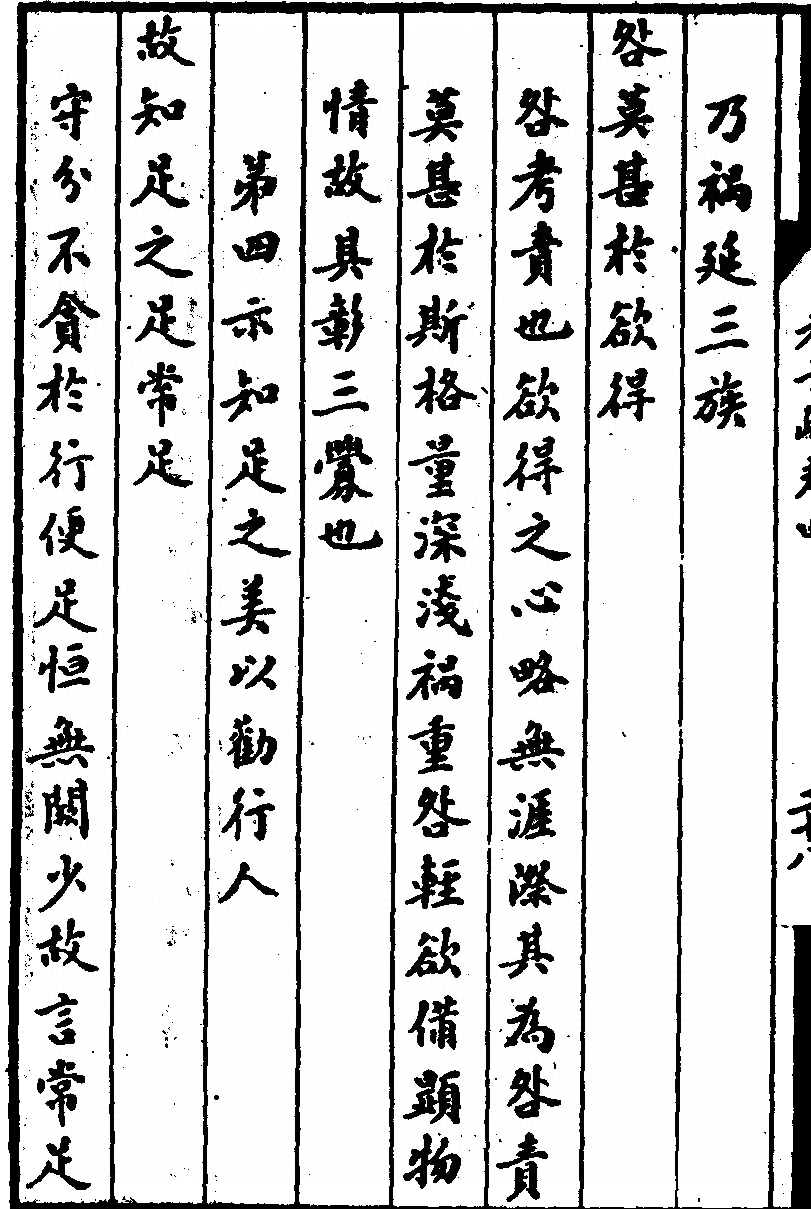 乃禍延三族
咎莫甚於欲得
咎考責也欲得之心略無涯際其為咎責
莫甚於斯格量深淺禍重咎輕欲備顯物
情故具彰三釁也
第四示知足之美以勸行人
故知足之足常足
守分不貪於行便足恒無闕少故言常足